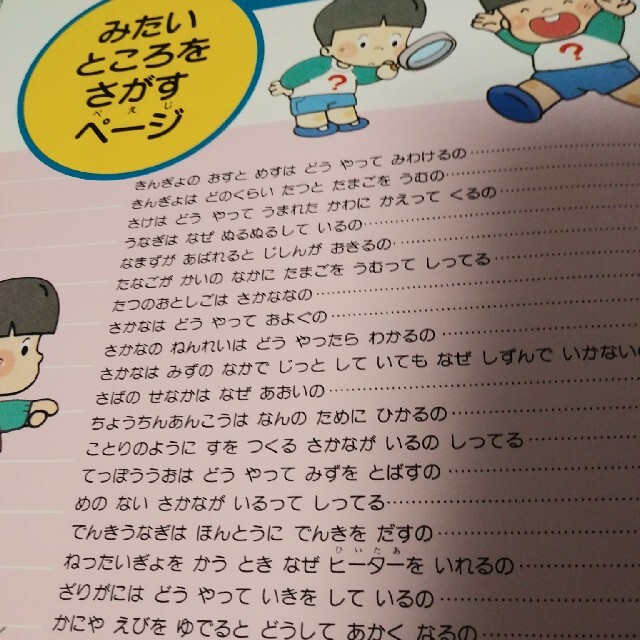 みたい
ところを
さがす
ぺえじ
ページ
?
?
きんぎょの おすと めすは どう やって みわけるの
きんぎょは どのくらい たつと たまごを うむの
さけは どう やって うまれた かわに かえって くるの
うなぎは なぜ ぬるぬるして いるの
なまずが あばれると じしんが おきるの
たなごが かいの なかに たまごを うむって しってる
たつのおとしごは さかななの
さかなは どう やって およぐの
さかなの ねんれいは どう やったら わかるの
さかなは みずの なかで じっと して いても なぜ しずんで いかない
さばの せなかは なぜ あおいの
ちょうちんあんこうは なんの ために ひかるの
ことりのように すを つくる さかなが いるの しってる
てっぽううおは どう やって みずを とばすの
めの ない さかなが いるって しってる
でんきうなぎは ほんとうに でんきを だすの
ひいたあ
ねったいぎょを かう とき なぜ ヒーターを いれるの
ざりがには どう やって いきを して いるの
かにや えびを ゆでると どうして あかく なるの